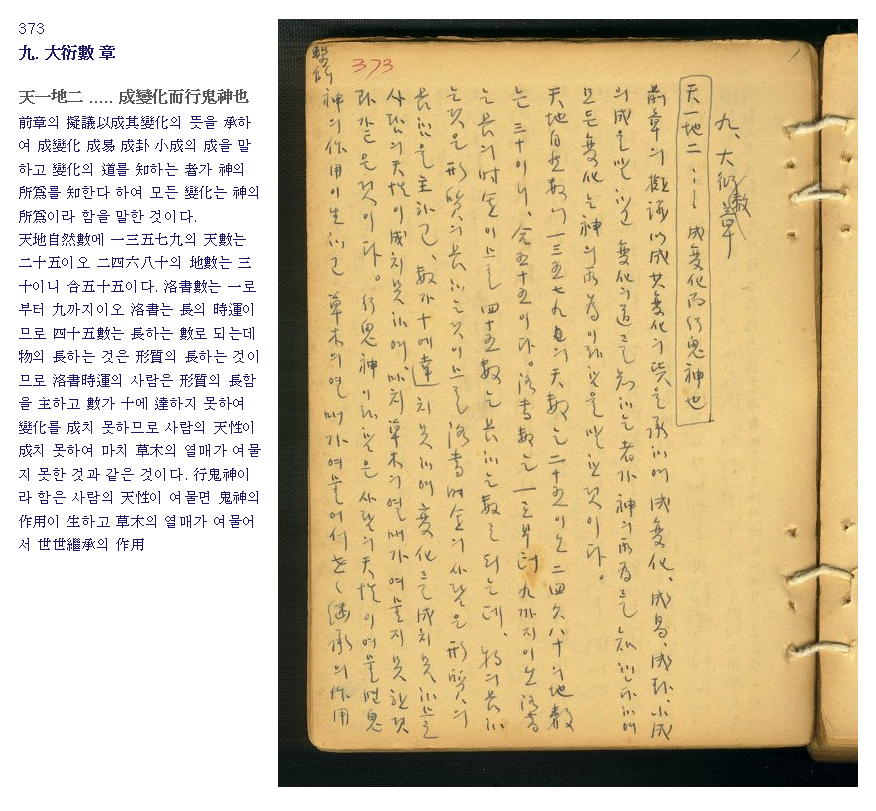 373
九. 大衍數 章
天一地二 ..... 成變化而行鬼神也
前章의 擬議以成其變化의 뜻을 承하
여 成變化 成易 成卦 小成의 成을 말
하고 變化의 道를 知하는 者가 神의
所爲를 知한다 하여 모든 變化는 神의
所爲이라 함을 말한 것이다.
天地自然數에 一三五七九의 天數는
二十五이오 二四六八十의 地數는 三
十이니 合五十五이다. 洛書數는 一로
부터 九까지이오 洛書는 長의 時運이
므로 四十五數는 長하는 數로 되는데
物의 長하는 것은 形質의 長하는 것이
므로 洛書時運의 사람은 形質의 長함
을 主하고 數가 十에 達하지 못하여
變化를 成치 못하므로 사람의 天性이
成치 못하여 마치 草木의 열매가 여물
지 못한 것과 같은 것이다. 行鬼神이
라 함은 사람의 天性이 여물면 鬼神의
作用이 生하고 草木의 열매가 여물어
서 世世繼承의 作用
373
九、大衍數章
天一地二 ⋯⋯ 成變化而行鬼神也
前章의 擬議以成其變化의 뜻을 承하여 成變化、成易、成卦、小成
의 成을 말하고 變化의 道를 知하는 者가 神의 所爲를 知한다 하여
모든 變化는 神의 所爲이라 함을 말한 것이다。
天地自然數에 一三五七九의 天數는 二十五이오 二四六八十의 地數
는 三十이니、合五十五이다。洛書數는 一로부터 九까지이오 洛書
는 長의 時運이므로 四十五數는 長하는 數로 되는데、物의 長하
는 것은 形質의 長하는 것이므로 洛書時運의 사람은 形質의
長함을 主하고、數가 十에 達치 못하여 變化를 成치 못하므로
사람의 天性이 成치 못하여 마치 草木의 열매가 여물지 못한 것
과 같은 것이다。行鬼神이라 함은 사람의 天性이 여물면 鬼
神의 作用이 生하고 草木의 열매가 여물어서 世々繼承의 作用